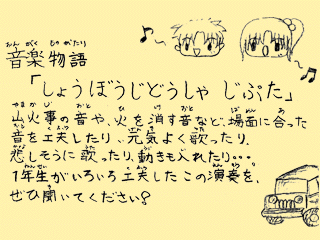 音楽物語
「しょうぼうじどうしゃ じぷた」
山火事の音や、火を消す音など、場面に合った
音を工夫したり、元気よく歌ったり、
悲しそうに歌ったり、動きを入れたり。。。
1年生がいろいろ工夫したこの演奏を、
ぜひ聞いてください!